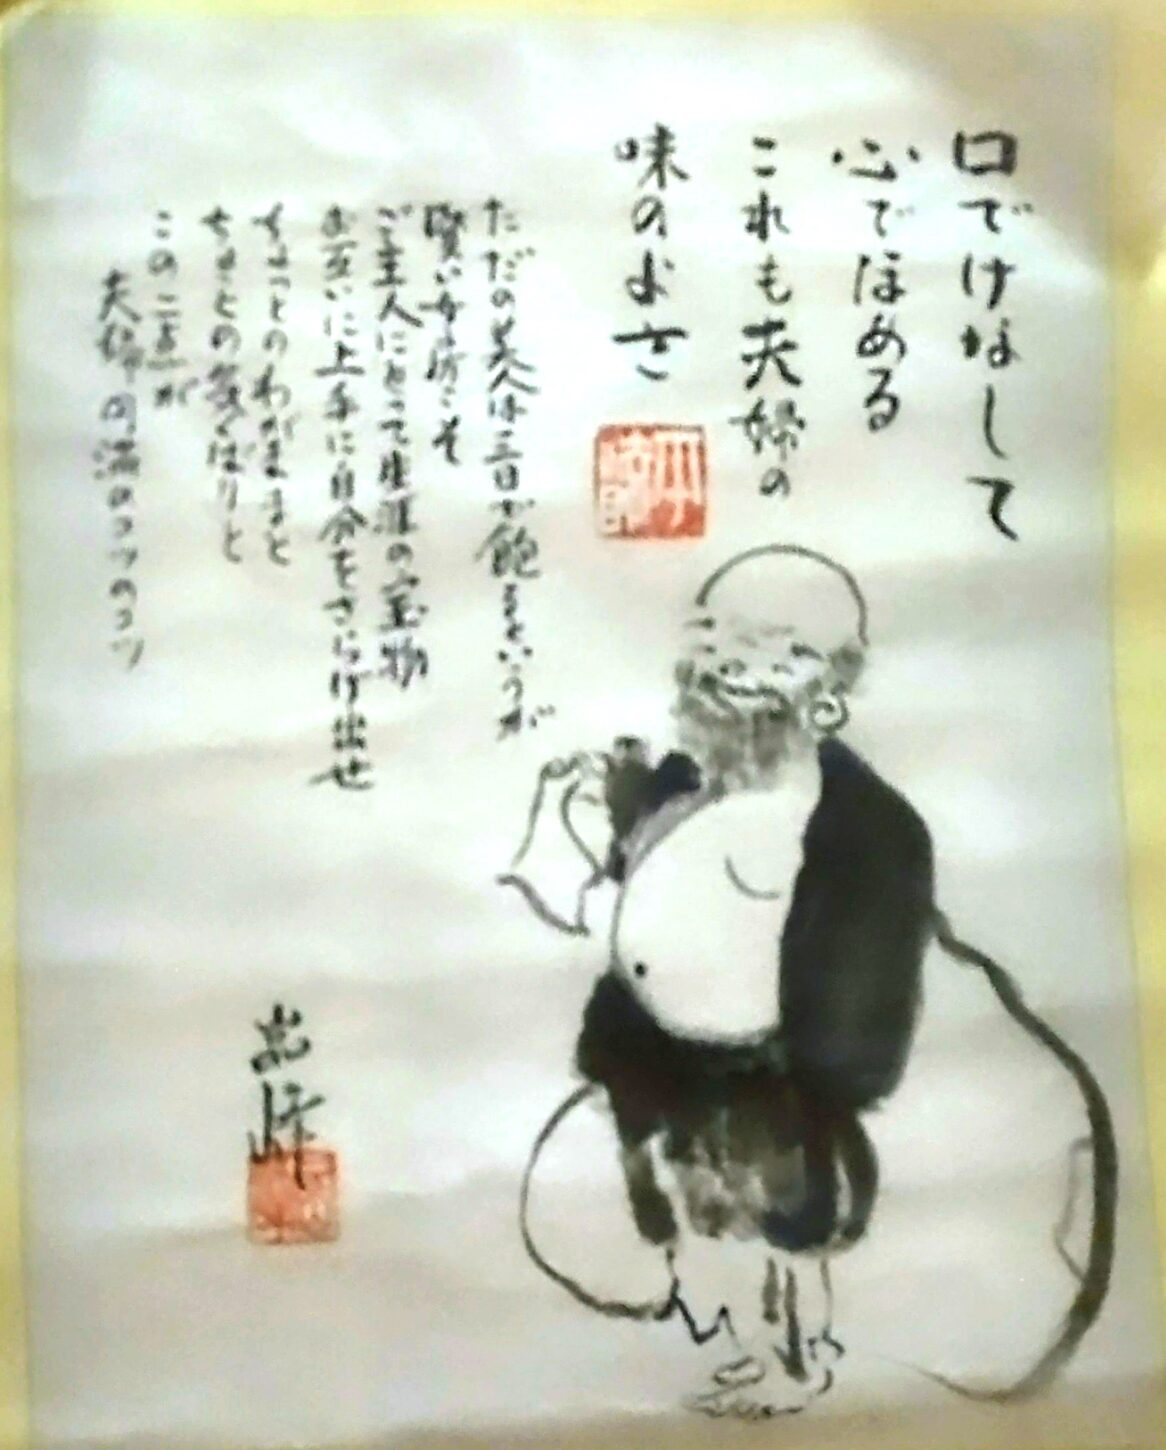 口でけなして
心でほめる
これも夫婦の
味のよさ
ただの美人は三日で飽きるというが
賢い女房こそ
ご主人にとって生涯の宝物
お互いに上手に自分をさらけ出せ
ちょっとのわがままと
ちょっとの気くばりと
この二つが
夫婦円満のコツのコツ